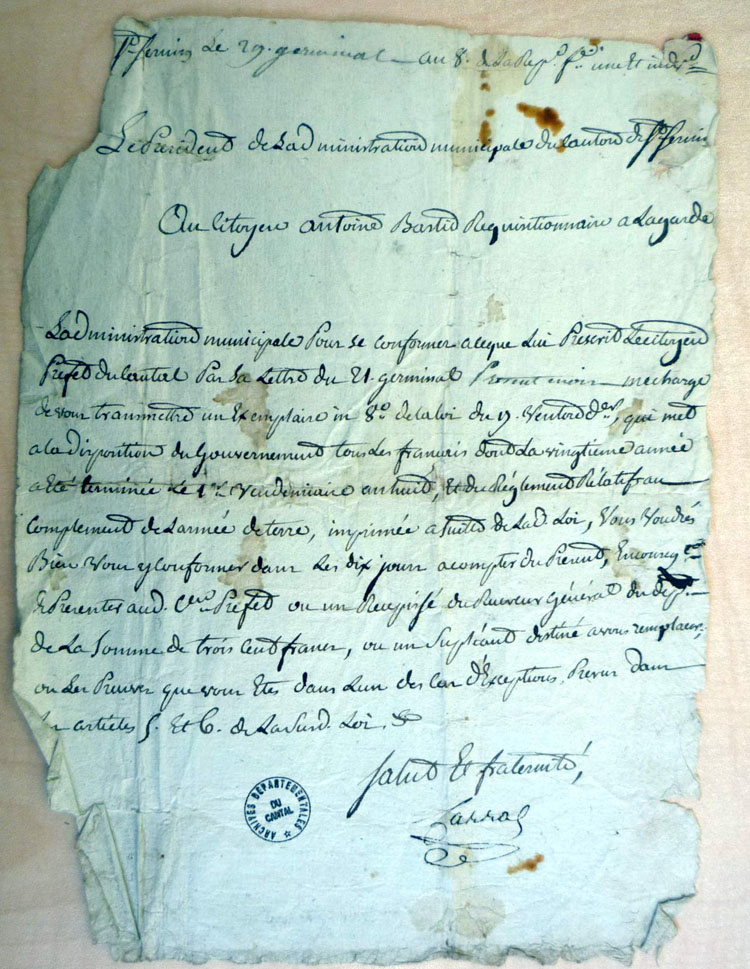 St. fernin Le 29. germinal an 8. de La Rep. f. une Et indi
Le President de Ladministration municipale du Canton de St. fernin
Au Citoyen antoine Bastid Requisitionnaire a Lagarde
Ladministration municipale Pour se conformer a ceque Lui Prescrit Le citoyen
Prefet du Cantal Par Sa Lettre du 21. germinal mecharge
de vous transmettre un Exemplaire in 8o. de la loi du 17. Ventose der, qui met
a la disposition du Gouvernement tous Les francais dont La vingtieme année
a Eté terminée Le 1er Vendemiaire an huit, Et du Réglement Rélatif au
Complement de Larmée de terre, imprimée a Suite de Lad. Loi, Vous Voudrés
Bien Vous y Conformer dans Les dix jours a compter du Present, En
Presenter aud. Cen. Prefet ou un Recepissé du Receveur général du dep.
de La Somme de trois Cent francs, ou un Supléant destiné a vous remplacer,
ou Les Preuves que vous Etes dans Lun des Cas d'Exceptions Prevus dans
articles 5. Et 6. de La Susd. Loi.
Salut Et fraternité,
Larral
ARCHIVES DÉPARTEMENTALES
DU
CANTAL